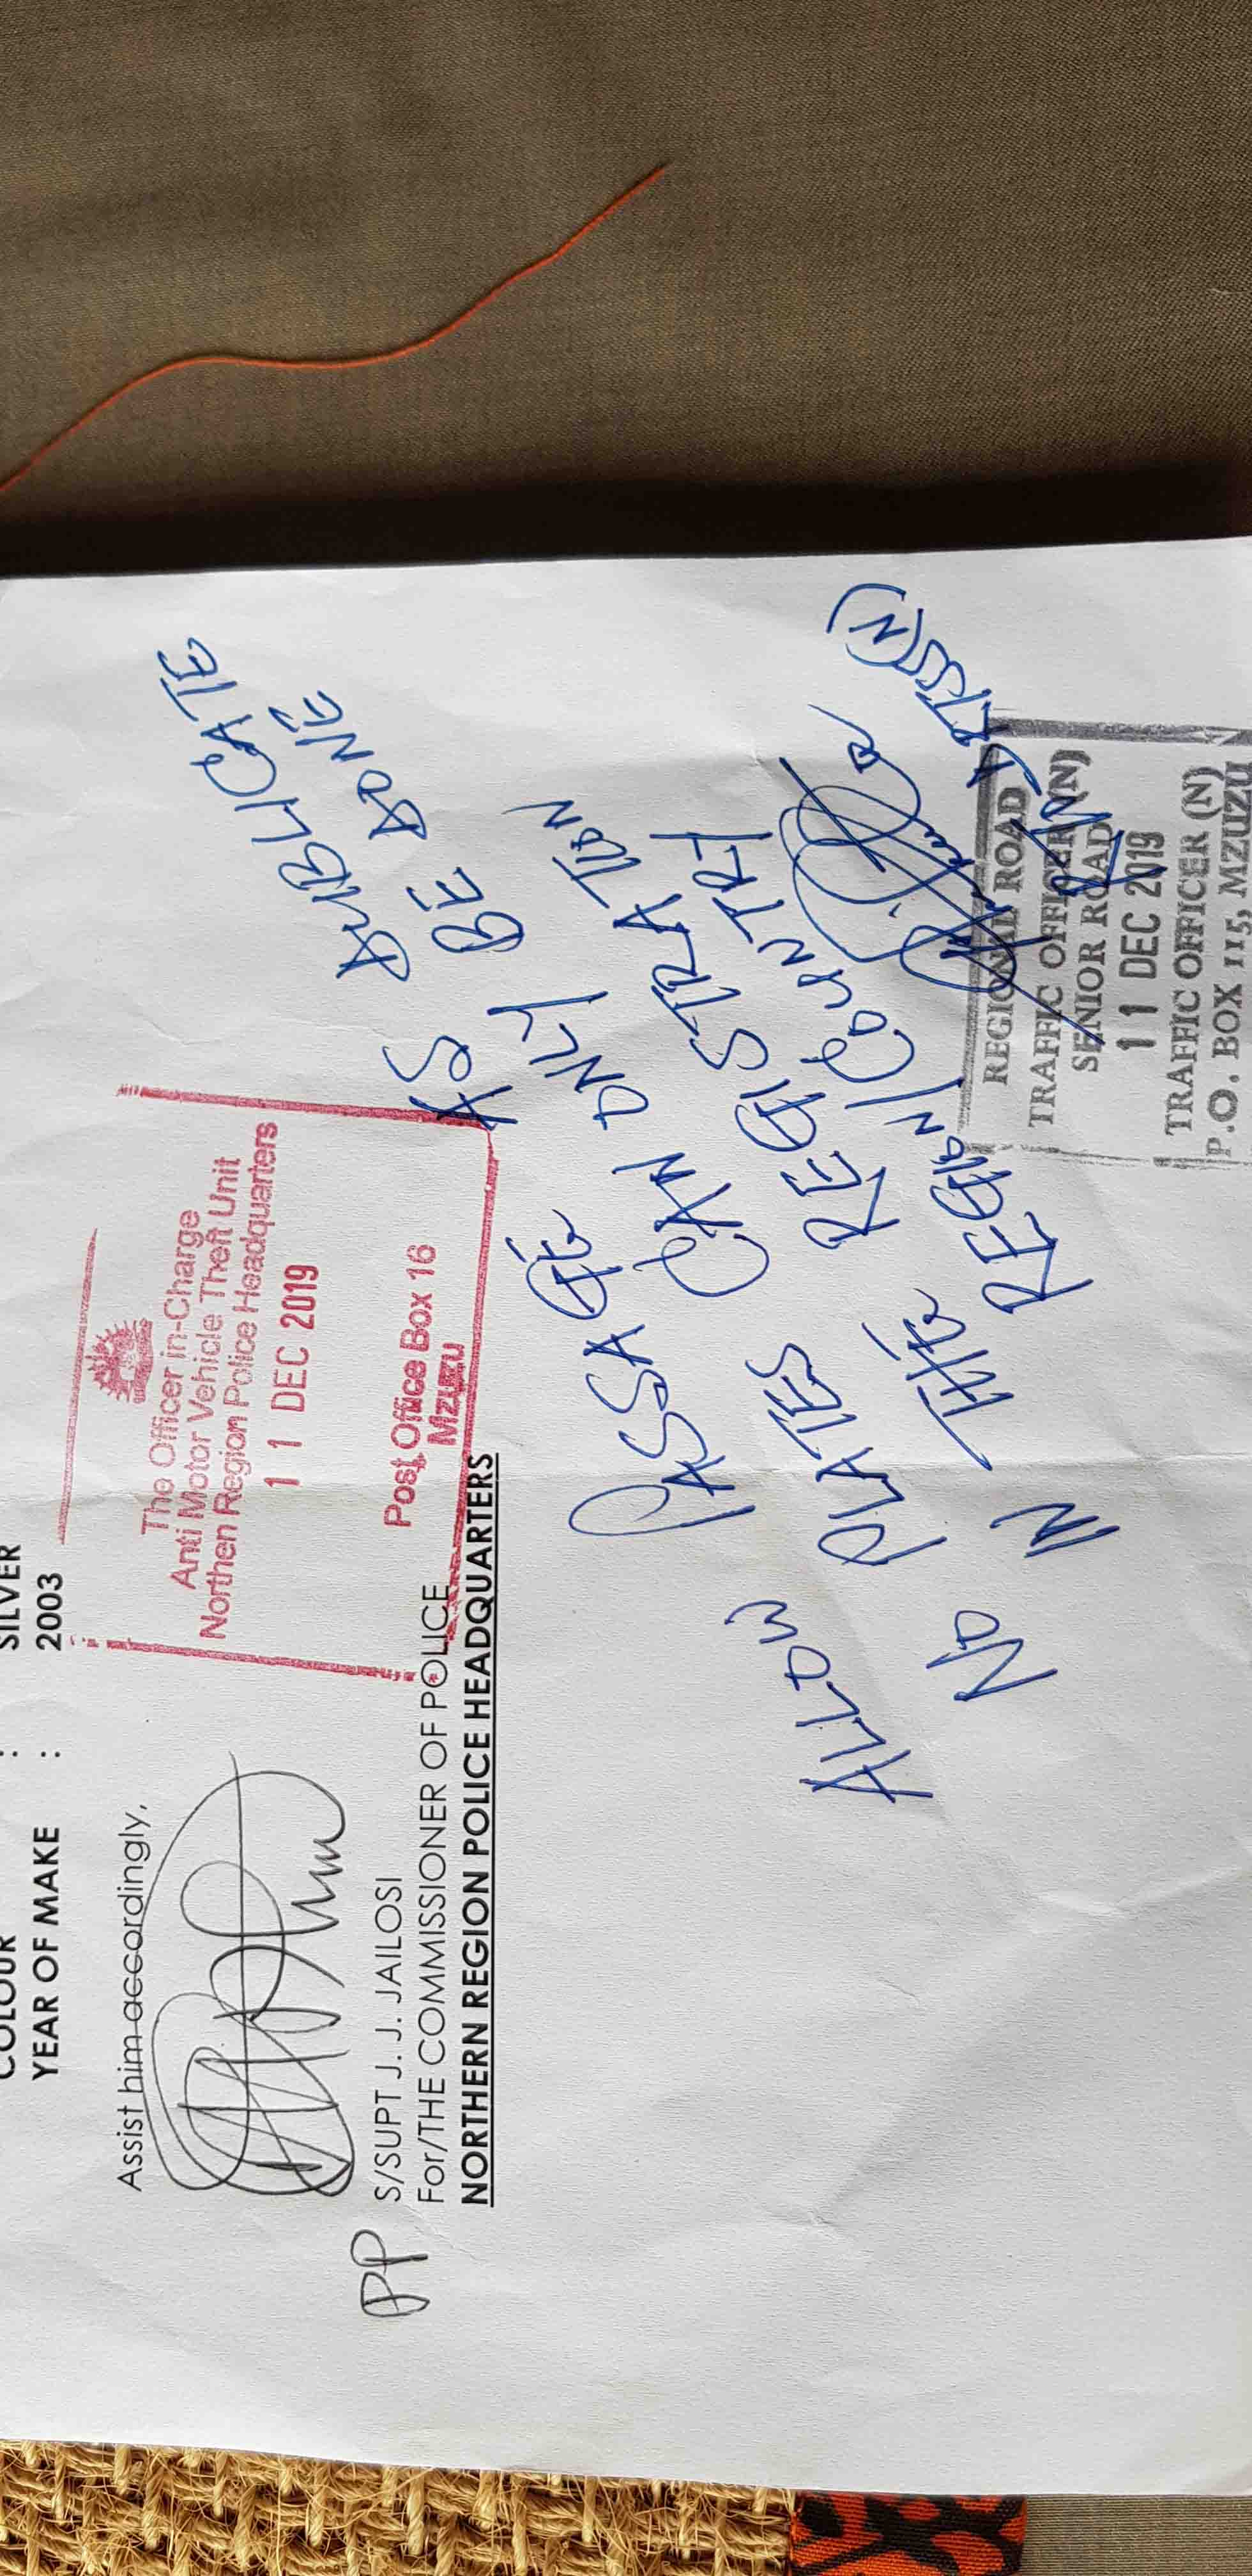 COLOUR : SILVER
YEAR OF MAKE : 2003
Assist him accordingly,
The Officer in-Charge
Anti Motor Vehicle Theft Unit
Northen Region Police Headquarters
11 DEC 2019
Post Office Box 16
Mzuzu
PP S/SUPT J. J. JAILOSI
For/THE COMMISSIONER OF POLICE
NORTHERN REGION POLICE HEADQUARTERS
ALLOW PASSAGE AS DUBLICATE
No PLATES CAN ONLY BE DONE
IN THE REGISTRATION
REGION/COUNTRY
REGIONAL ROAD
TRAFFIC OFFICER (N)
SENIOR ROAD
11 DEC 2019
TRAFFIC OFFICER (N)
P.O. BOX 115, MZUZU